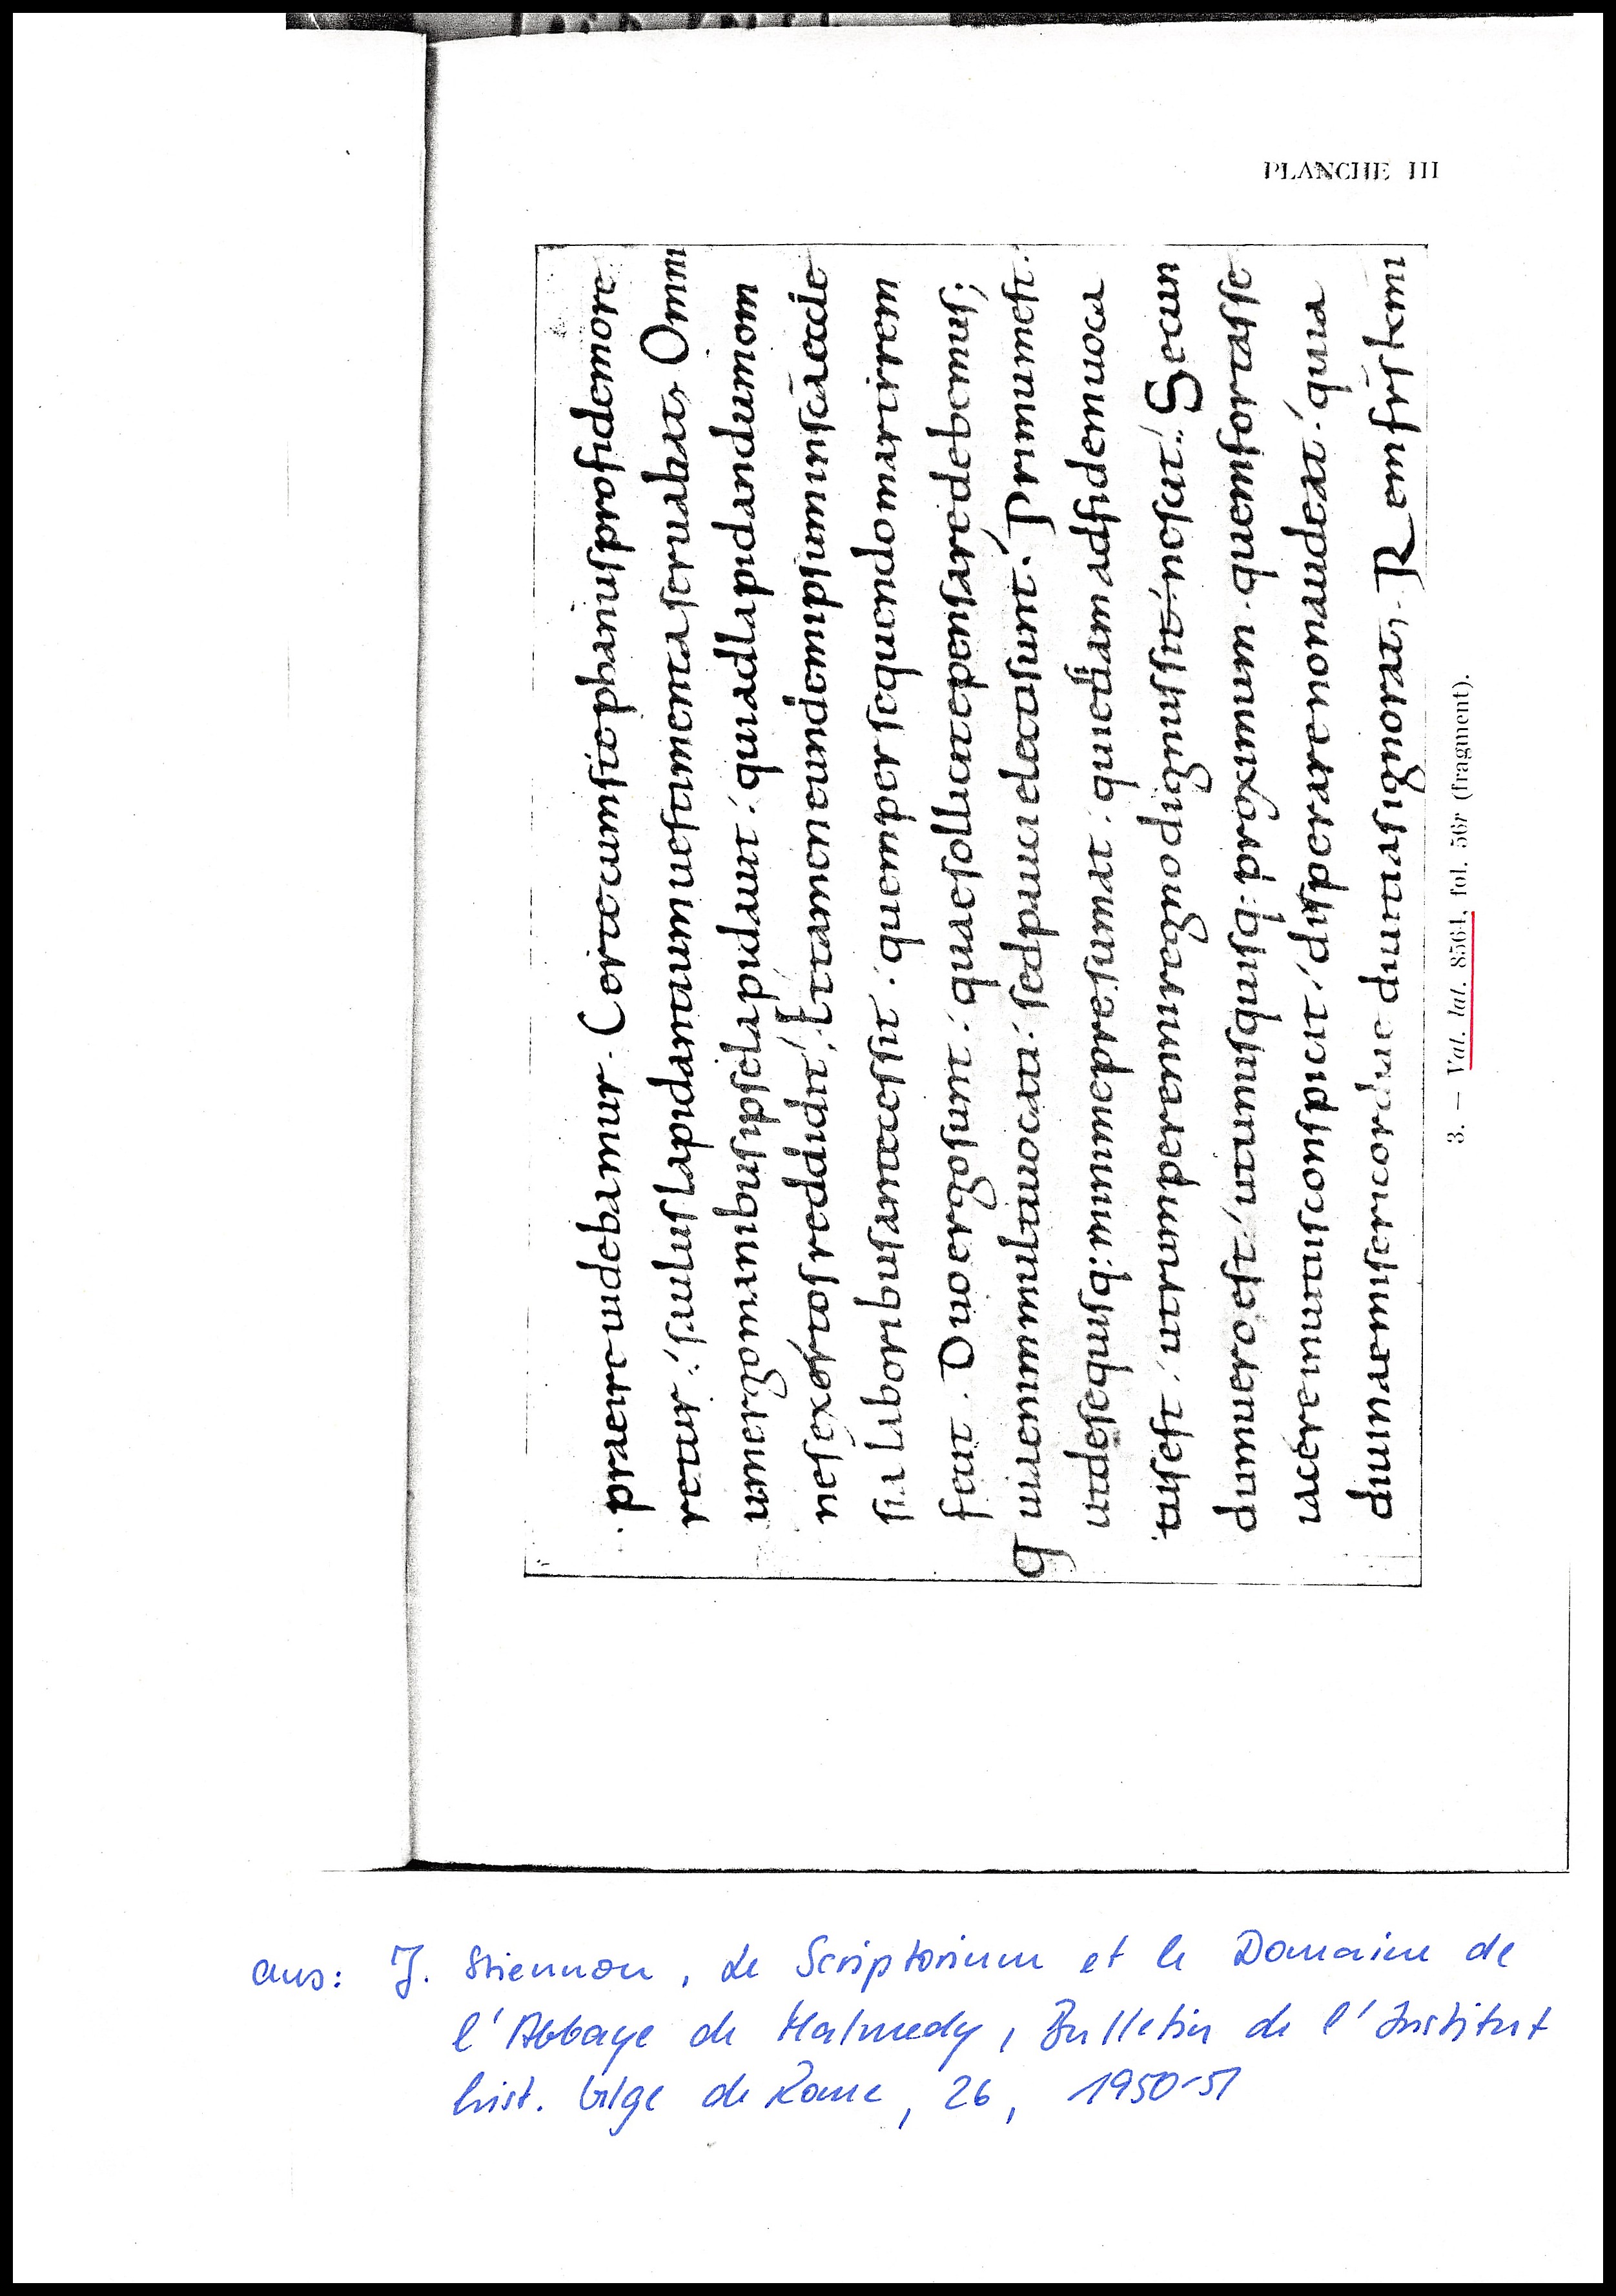 PLANCHE III
. praeire uidebamur . Certe cum stephanus pro fide more
retur : saulus lapidantium uestimenta seruabat, Omni
um ergo manibus ipse lapidauit : qui ad lapidandum om
nes exertos reddidit ; Et tamen eundem ipsum in scā ecclē
sia laboribus antecessit . quem persequendo martirem
fecit . Duo ergo sunt : quae sollicite pensare debemus ;
Quia enim multi uocati : sed pauci electi sunt . Primum est .
ut de se quisq: minime presumat . qui etiam ad fidem uoca
tus est , utrum perenni regno dignus sit , nescit . Secun
dum uero est , ut unusquisq: proximum . quem fortasse
iacere in uitiis conspicit , disperare non audeat . quia
diuinae misericordiae diuitias ignorat, . Rem frīs
3. — Vat. lat. 8564, fol. 56r (fragment).
aus: J. Stiennon, Le Scriptorium et le Domaine de
l'Abbaye de Malmedy, Bulletin de l'Institut
hist. belge de Rome, 26, 1950-51